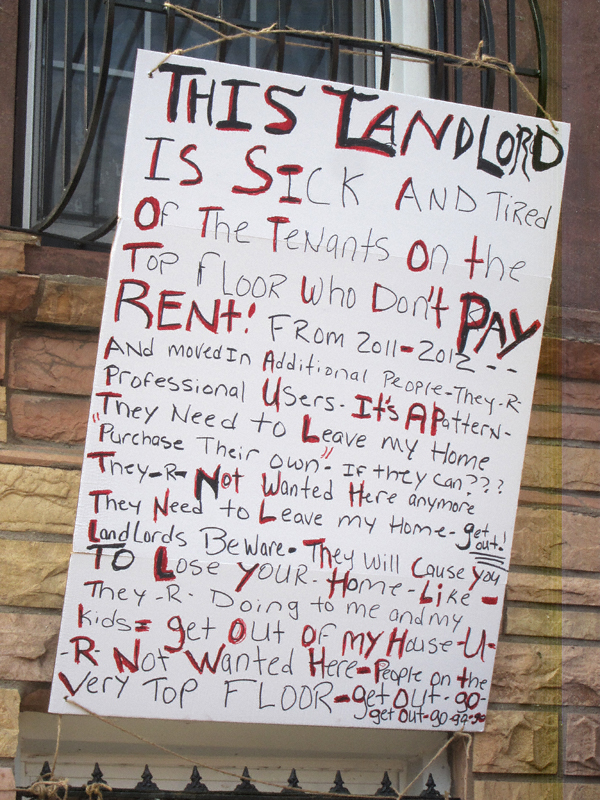 THIS LANDLORD
IS SICK AND TiRED
Of The TeNANTS ON the
Top FLOOR WHO DoN't PAY
RENT! FROM 2011-2012---
AND moved IN Additional People-They-R-
Professional Users-It's A Pattern-
"They Need to Leave my Home
Purchase Their own"- If they can???
They-R-Not Wanted Here anymore
They Need to Leave my Home-get out!
LandLords BeWare-They will Cause you
TO Lose YOUR-Home-Like-
They-R-Doing to me and my
kids=get Out OF my House-U-
-R-Not Wanted Here-People on the
Very Top FLOOR-get Out-go-
get Out-go-go-go